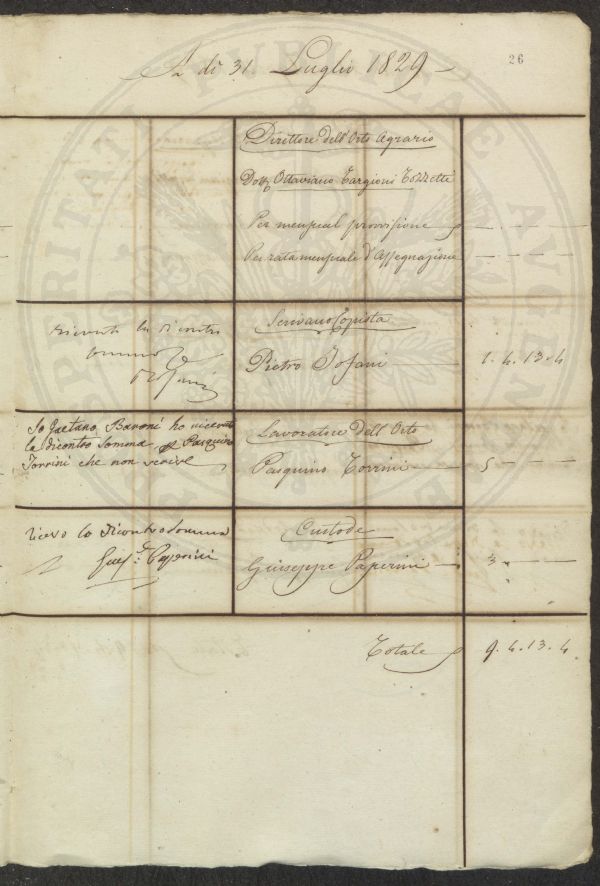 A dì 31 Luglio 1829
26
Direttore dell'Orto Agrario
Dott. Ottaviano Targioni Tozzetti
Per mensual provvisione
Per rata mensuale d'Assegnazione
ricevuto la dicontro
somma
Scrivano Copista
Pietro Tofani
1. 4. 13. 4
Io Gaetano Baroni ho ricevuto
la dicontro somma p Pasquino
Torrini che non scrive
Lavoratore dell'Orto
Pasquino Torrini
5
ricevo la dicontro somma
Giuse. Paperini
Custode
Giuseppe Paperini
3
Totale
9. 4. 13. 4
VERITATI PUBLICAE AUGEN